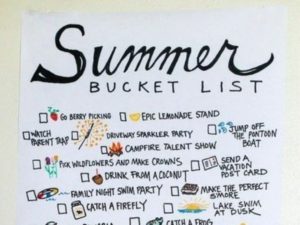 Summer
BUCKET LIST
GO BERRY PICKING
EPIC LEMONADE STAND
WATCH
PARENT TRAP
DRIVEWAY SPARKLER PARTY
JUMP OFF
THE PONTOON
BOAT
CAMPFIRE TALENT SHOW
PICK WILDFLOWERS AND MAKE CROWNS
SEND A
VACATION
POST CARD
DRINK FROM A COCONUT
FAMILY NIGHT SWIM PARTY
MAKE THE PERFECT
S'MORE
CATCH A FIREFLY
LAKE SWIM
AT DUSK
CATCH A FROG